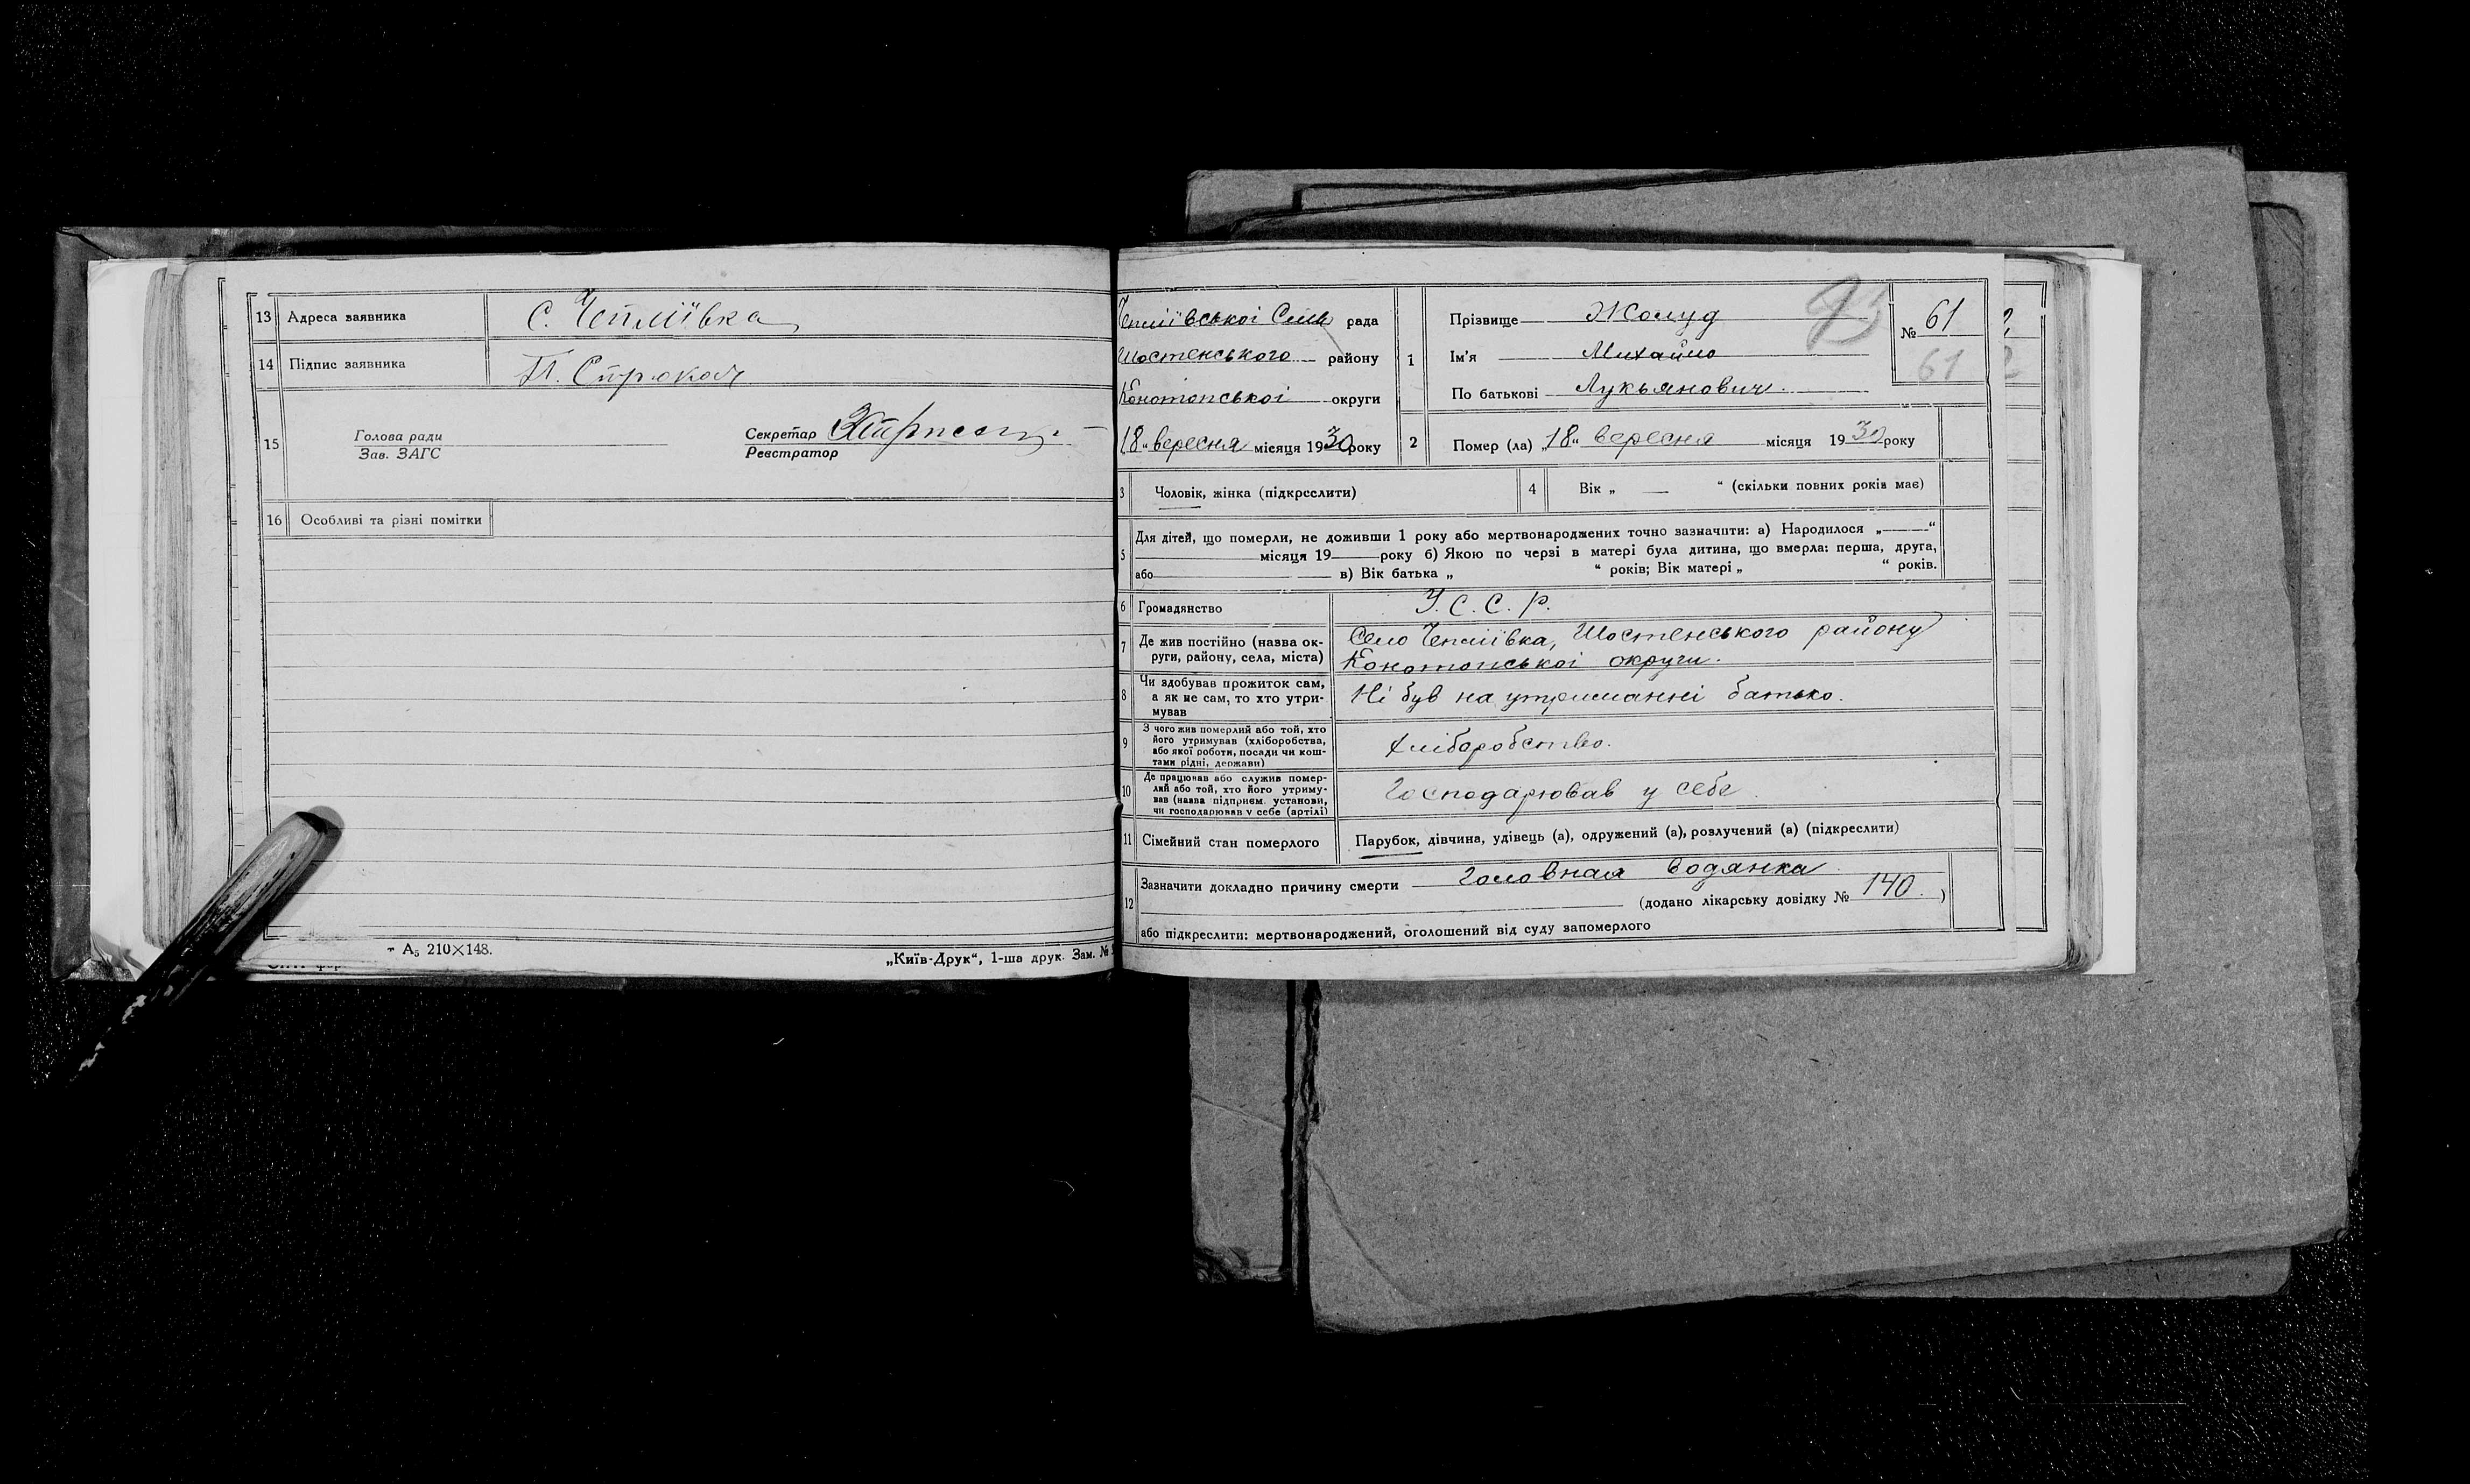 13 Адреса заявника с. Чепліївка
14 Підпис заявника П.
15 Голова ради
Зав. ЗАГС
Секретар
Реєстратор
16 Особливі та різні помітки
т А5 210×148.
„Київ-Друк“, 1-ша друк. Зам. №
Чепліївської Сель рада
Шостенського району
Конотопської округи
18 „ вересня місяця 1930 року
1 Прізвище Жолуд
Ім'я Михайло
По батькові Лукьянович.
№ 61
61
2 Помер (ла) „18“ вересня місяця 1930 року
3 Чоловік, жінка (підкреслити)
4 Вік „ — “ (скільки повних років має)
5 Для дітей, що померли, не доживши 1 року або мертвонароджених точно зазначити: а) Народилося „ — “
місяця 19 — року б) Якою по черзі в матері була дитина, що вмерла: перша, друга,
або в) Вік батька „ “ років; Вік матері „ “ років.
6 Громадянство У.С.С.Р.
7 Де жив постійно (назва ок-
руги, району, села, міста)
Село Чепліївка, Шостенського району
Конотопської округи.
8 Чи здобував прожиток сам,
а як не сам, то хто утри-
мував
Ні був на утриманні батько.
9 З чого жив померлий або той, хто
його утримував (хліборобства,
або якої роботи, посади чи кош-
тами рідні, держави)
Хліборобство.
10 Де працював або служив помер-
лий або той, хто його утриму-
вав (назва підприєм. установи,
чи господарював у себе (артілі)
Господарював у себе
11 Сімейний стан померлого Парубок, дівчина, удівець (а), одружений (а), розлучений (а) (підкреслити)
12 Зазначити докладно причину смерти Головная водянка.
(додано лікарську довідку № 140. )
або підкреслити: мертвонароджений, оголошений від суду запомерлого